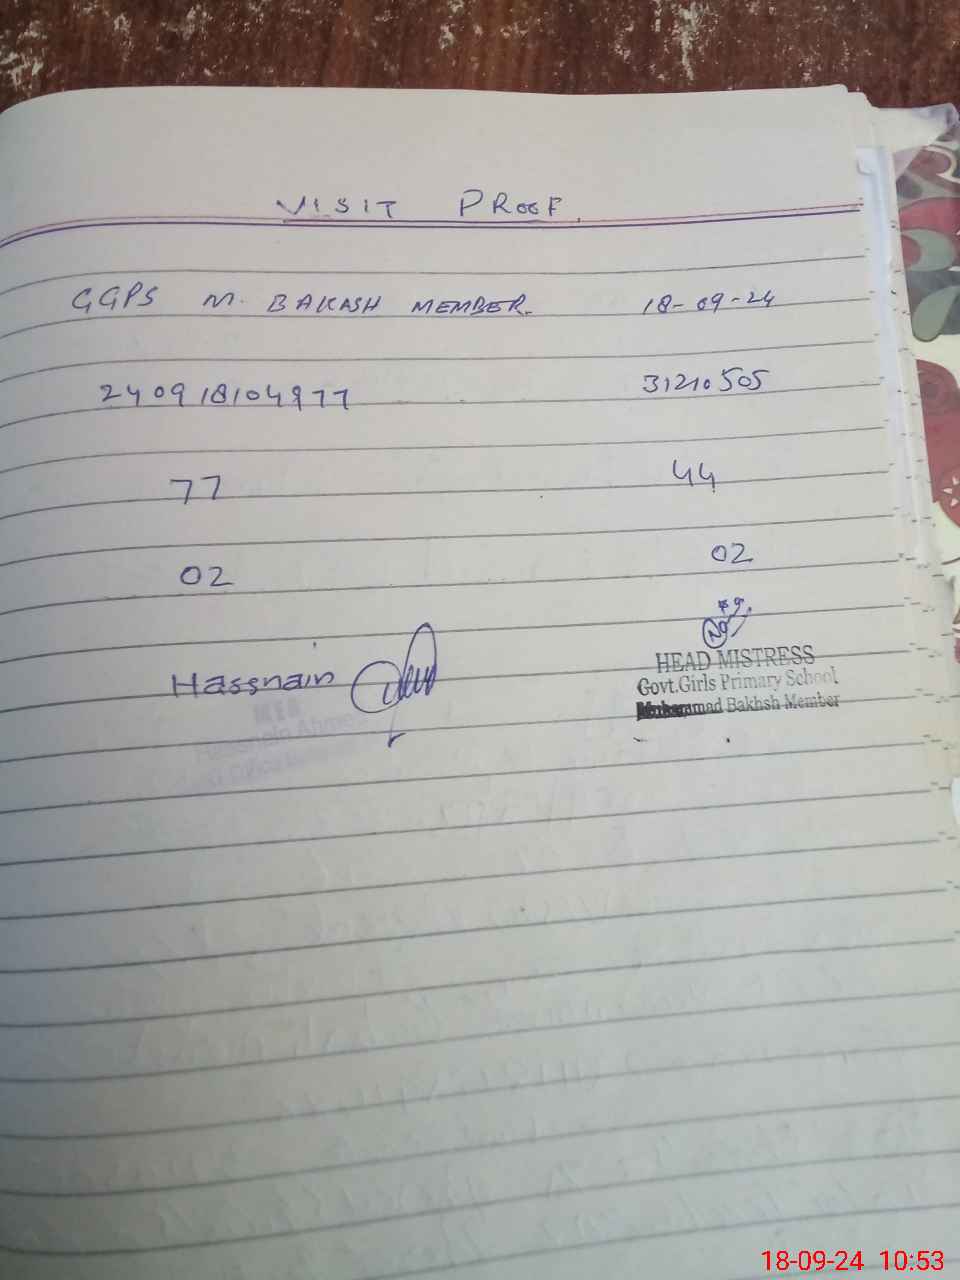 VISIT PROOF.
GGPS M. BAKASH MEMBER. 18-09-24
240918104977 31210505
77 44
02 02
Hassnain
HEAD MISTRESS
Govt.Girls Primary School
Muhammad Bakhsh Member
Hassnain Ahmed
18-09-24 10:53